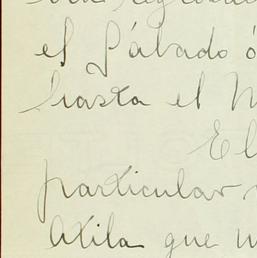 el Sábado ó
hasta el
El
particular
Atila que